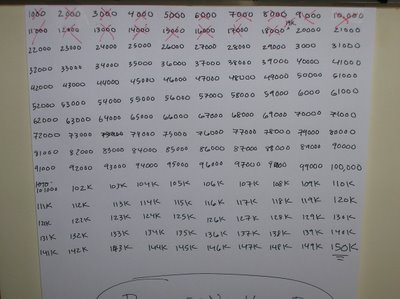 1000 2000 3000 4000 5000 6000 7000 8000 9000 10,000
11000 12000 13000 14000 15000 16000 17000 18000 19K 20000 21000
22000 23000 24000 25000 26000 27000 28000 29000 3000 31000
32000 33000 34000 35000 36000 37000 38000 39000 40000 41000
42000 43000 44000 45000 46000 47000 48000 49000 50000 51000
52000 53000 54000 55000 56000 57000 58000 59000 60000 61000
62000 63000 64000 65000 66000 67000 68000 69000 70000 71000
72000 73000 74000 75000 76000 77000 78000 79000 80000
81000 82000 83000 84000 85000 86000 87000 88000 89000 90000
91000 92000 93000 94000 95000 96000 97000 99000 100,000
101000 102K 103K 104K 105K 106K 107K 108K 109K 110K
111K 112K 113K 114K 115K 116K 117K 118K 119K 120K
122K 123K 124K 125K 126K 127K 128K 129K 130K
131K 132K 133K 134K 135K 136K 137K 138K 139K 140K
141K 142K 143K 144K 145K 146K 147K 148K 149K 150K